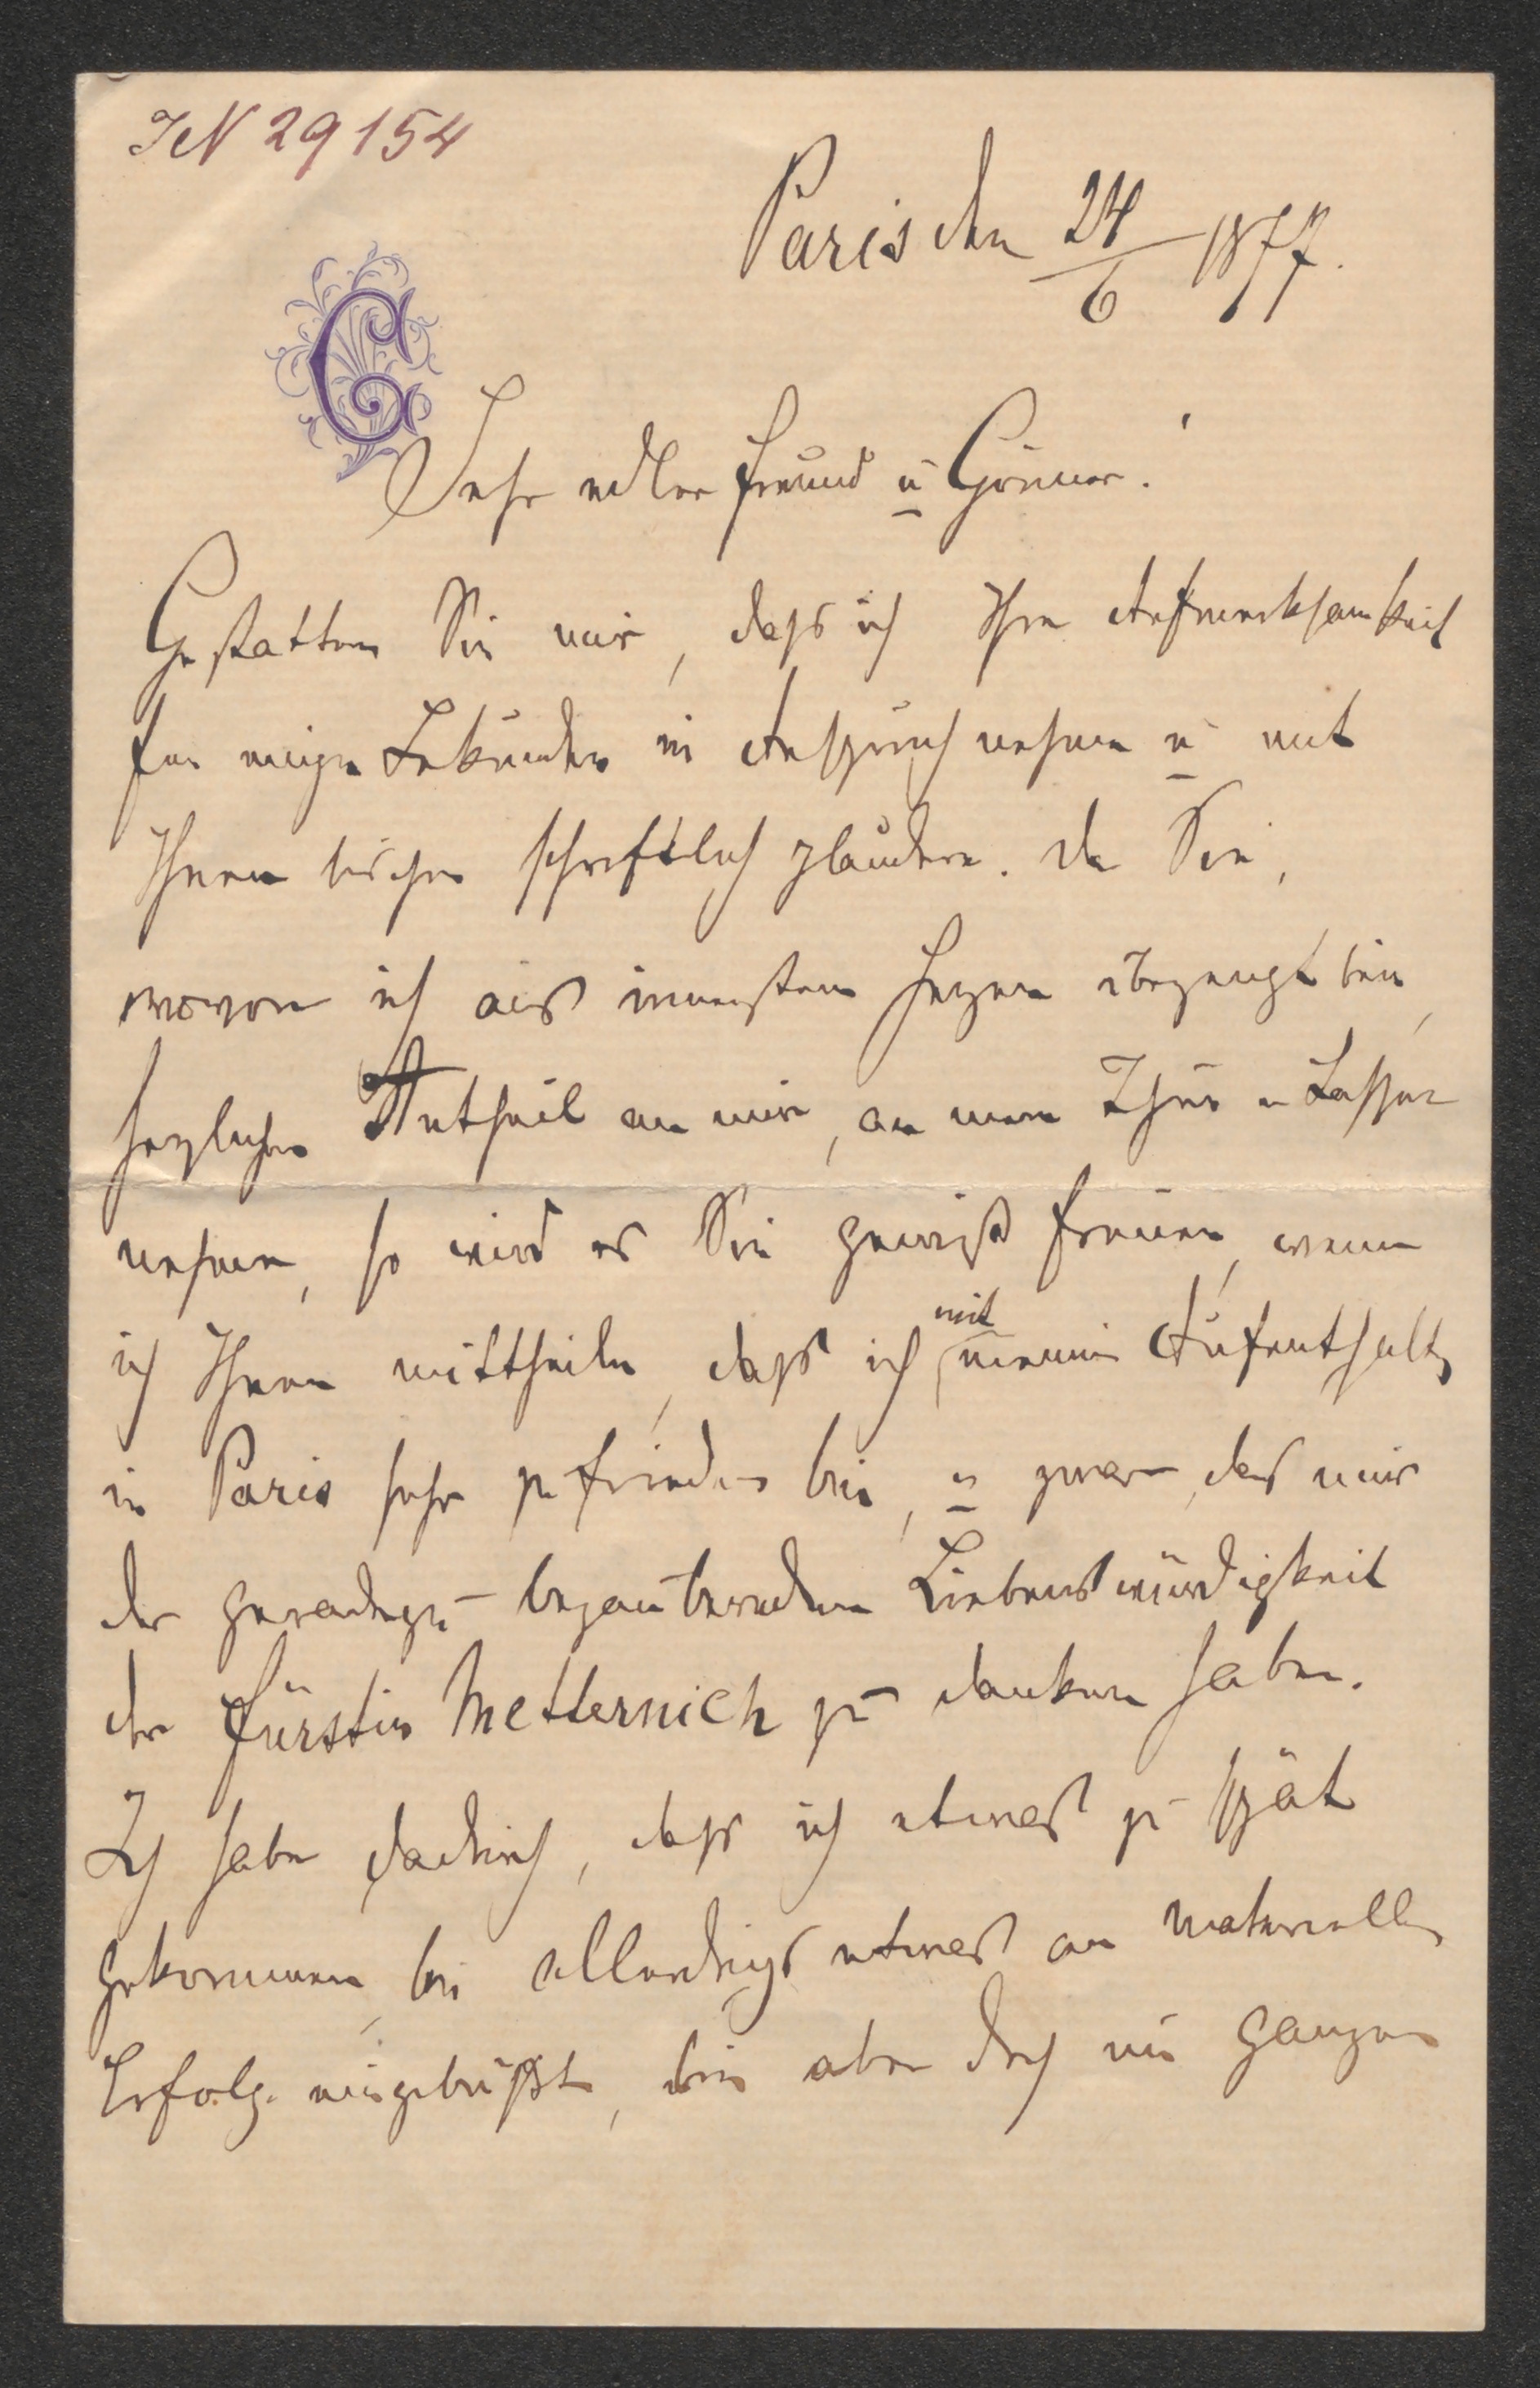 IN 29154
Paris den 24/6 1877.
G
Sehr edler Freund u Gönner!
Gestatten Sie mir, daß ich Ihre Aufmerksamkeit
für einige Sekunden in Anspruch nehme u mit
Ihnen bischen schriftlich plaudere. Da Sie,
wovon ich aus innerstem Herzen überzeugt bin,
herzlichen Antheil an mir, an mein Thun u Lassen
nehmen, so wird es Sie gewiß freuen, wenn
ich Ihnen mittheile, daß ich mit meinem Aufenthalte
in Paris sehr zufrieden bin, u zwar, das nur
der geradezu bezaubernden Liebenswürdigkeit
der Fürstin Metternich zu danken habe.
Ich habe dadurch, daß ich etwas zu spät
gekommen bin allerdings etwas an materiellen
Erfolg eingebüßt, bin aber doch im Ganzen